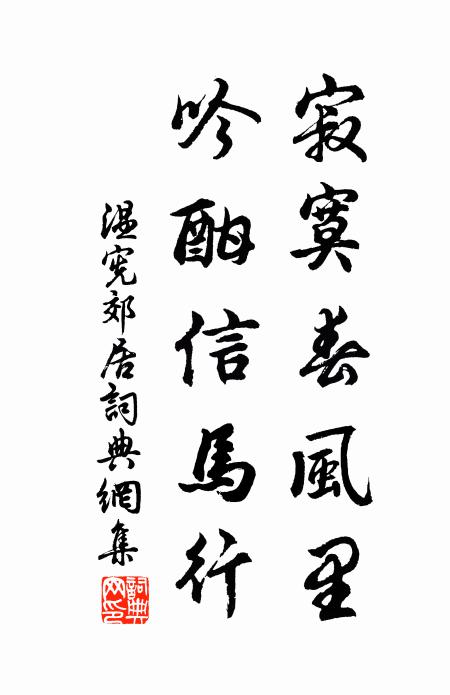 寂寞春風里
吟酣信馬行
温憲郊居詞典網集
詞典网印